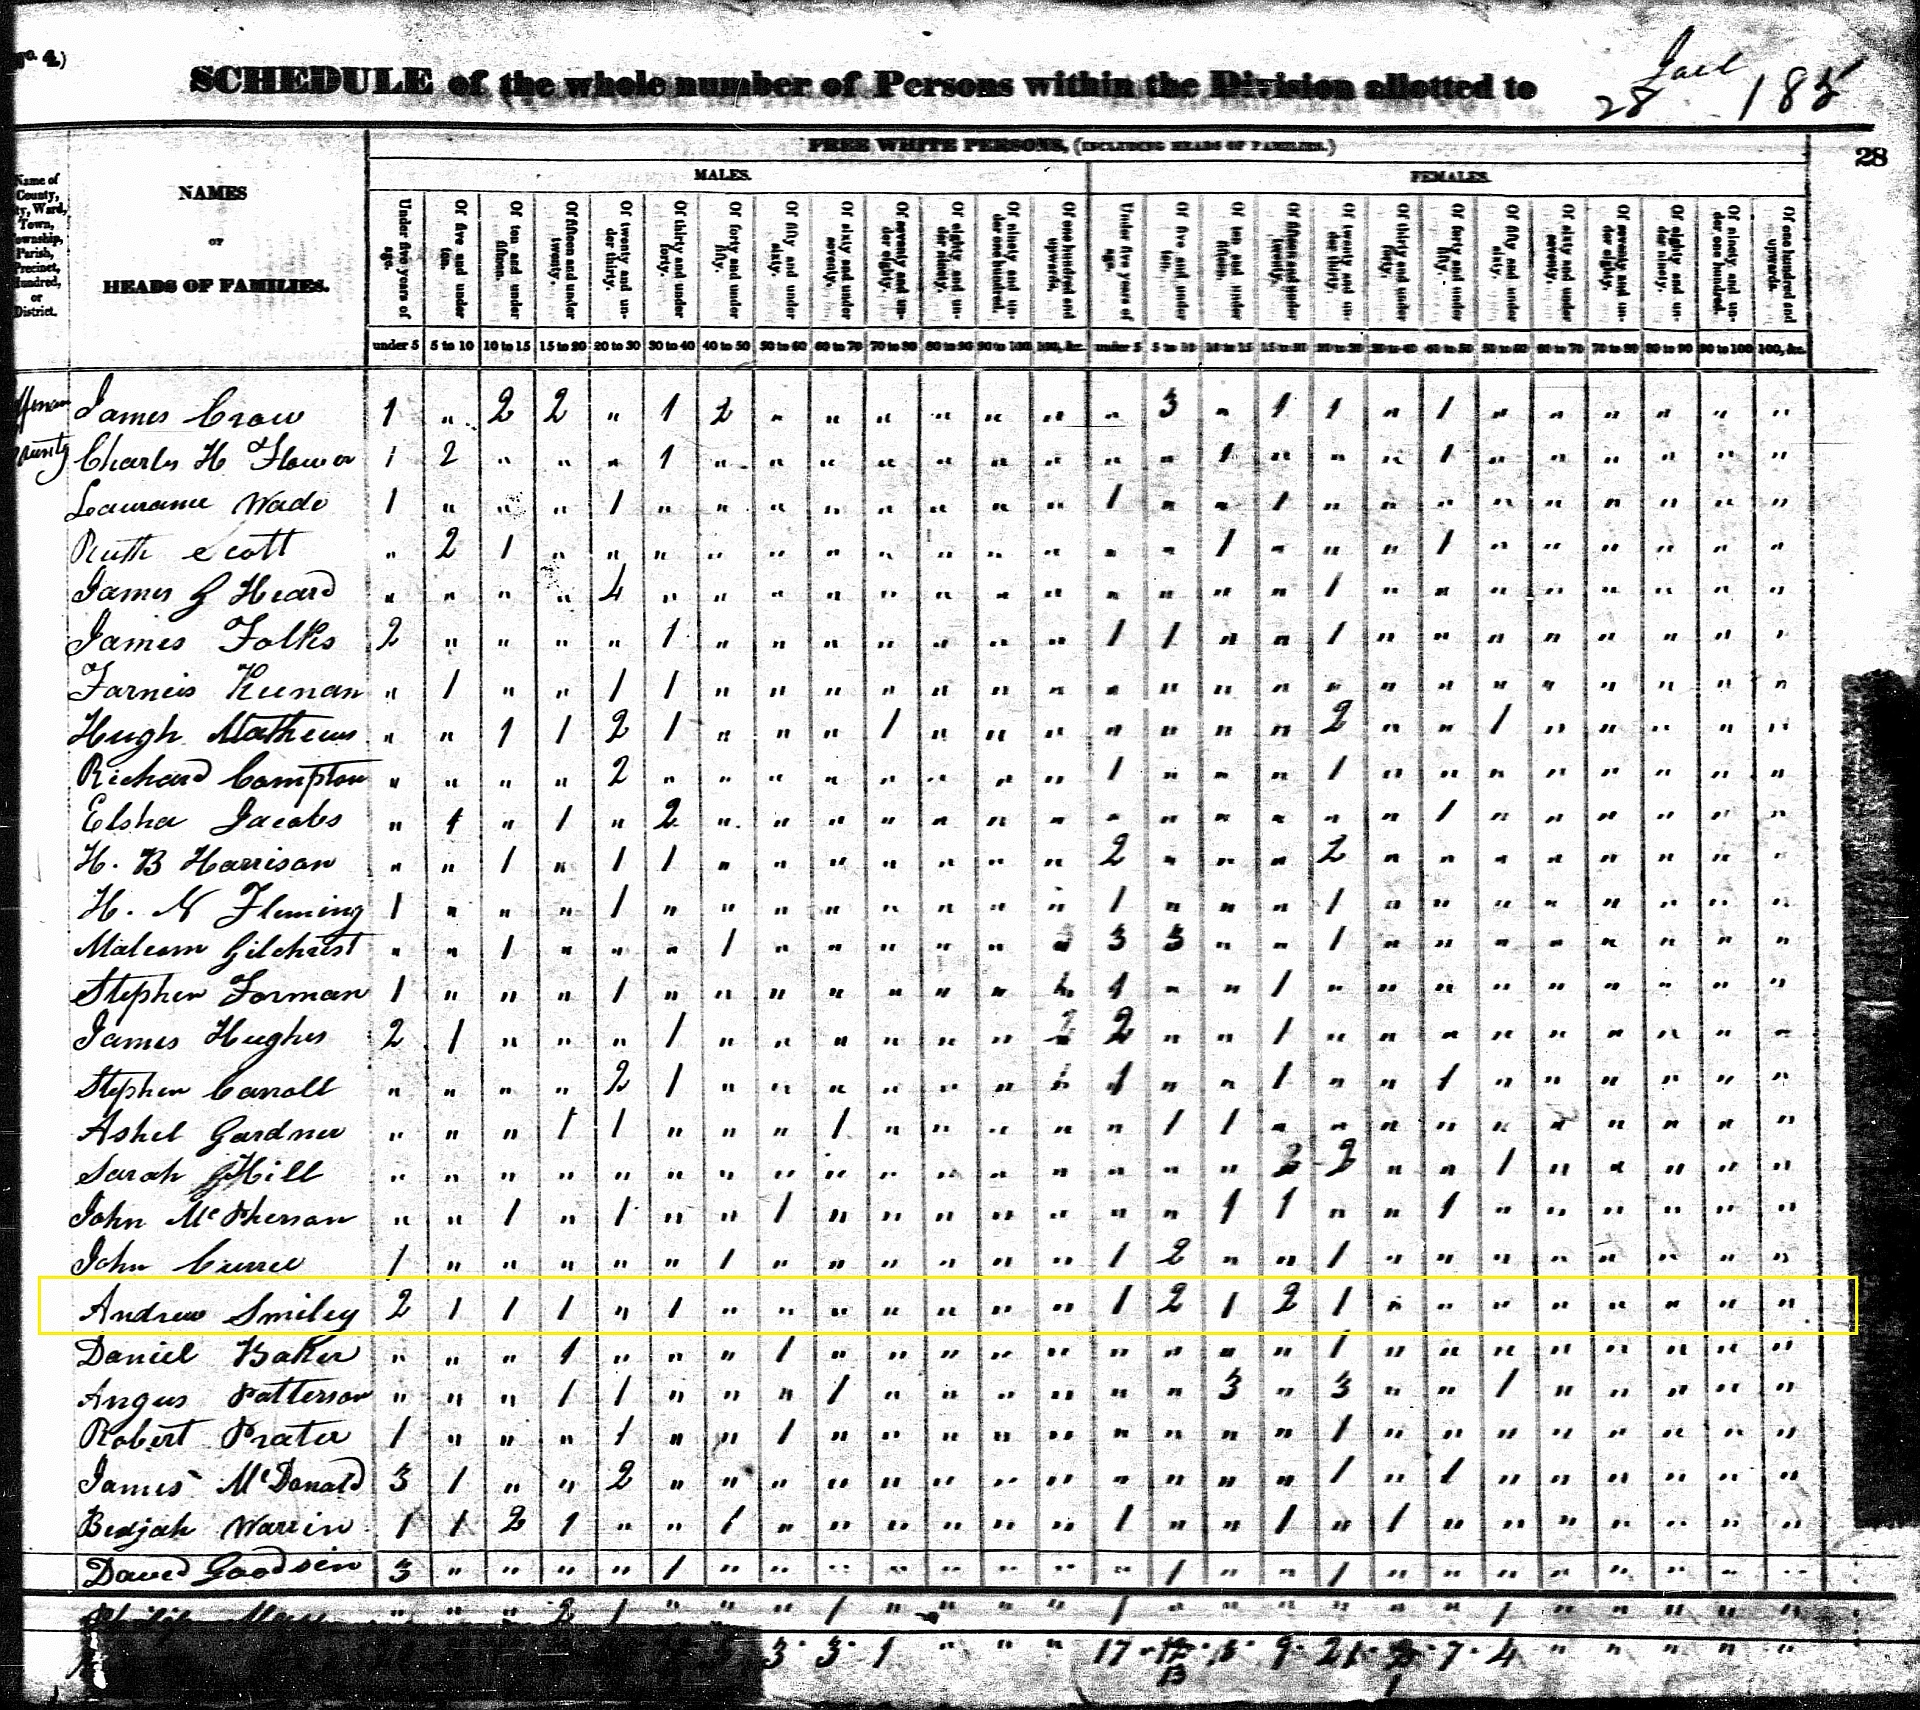 No. 4.)
SCHEDULE of the whole number of Persons within the Division allotted to
28 183
28
FREE WHITE PERSONS, (INCLUDING HEADS OF FAMILIES.)
MALES. FEMALES.
Name of County, City, Ward, Town, Township, Parish, Precinct, Hundred, or District.
NAMES
OF
HEADS OF FAMILIES.
Under five years of age. Of five and under ten. Of ten and under fifteen. Of fifteen and under twenty. Of twenty and under thirty. Of thirty and under forty. Of forty and under fifty. Of fifty and under sixty. Of sixty and under seventy. Of seventy and under eighty. Of eighty and under ninety. Of ninety and under one hundred. Of one hundred and upwards. Under five years of age. Of five and under ten. Of ten and under fifteen. Of fifteen and under twenty. Of twenty and under thirty. Of thirty and under forty. Of forty and under fifty. Of fifty and under sixty. Of sixty and under seventy. Of seventy and under eighty. Of eighty and under ninety. Of ninety and under one hundred. Of one hundred and upwards.
under 5 5 to 10 10 to 15 15 to 20 20 to 30 30 to 40 40 to 50 50 to 60 60 to 70 70 to 80 80 to 90 90 to 100 100, &c. under 5 5 to 10 10 to 15 15 to 20 20 to 30 30 to 40 40 to 50 50 to 60 60 to 70 70 to 80 80 to 90 90 to 100 100, &c.
James Crow 1 " 2 2 " 1 2 " " " " " " " 3 " 1 1 " 1 " " " " " "
Charles H Flower 1 2 " " " 1 " " " " " " " " " 1 " " " 1 " " " " " "
Laurance Wade 1 " " " 1 " " " " " " " " 1 " " 1 " " " " " " " " "
Ruth Scott " 2 1 " " " " " " " " " " " " 1 " " " 1 " " " " " "
James G Heard " " " " 4 " " " " " " " " " " " " 1 " " " " " " " "
James Folks 2 " " " " 1 " " " " " " " 1 1 " " 1 " " " " " " " "
Farneis Keenan " 1 " " 1 1 " " " " " " " " " " " " " " " " " " " "
Hugh Mathews " " 1 1 2 1 " " " 1 " " " " " " " 2 " " 1 " " " " "
Richard Compton " " " " 2 " " " " " " " " 1 " " " 1 " " " " " " " "
Elsha Jacobs " 1 " 1 " 2 " " " " " " " " " " " " " 1 " " " " " "
H. B Harrison " " 1 " 1 1 " " " " " " " 2 " " " 2 " " " " " " " "
H. N Fleming 1 " " " 1 " " " " " " " " 1 " " " 1 " " " " " " " "
Malcum Gilchrist " " 1 " " " 1 " " " " " " 3 3 " " 1 " " " " " " " "
Stephen Forman 1 " " " 1 " " " " " " " " 1 " " 1 " " " " " " " " "
James Hughes 2 1 " " " 1 " " " " " " " 2 " " 1 " " " " " " " " "
Stephen Carroll " " " " 2 1 " " " " " " " 1 " " 1 " " 1 " " " " " "
Ashel Gardner " " " 1 1 " " " 1 " " " " " 1 1 " " " " " " " " " "
Sarah G Hill " " " " " " " " " " " " " " " " 2 2 " " 1 " " " " "
John McPherson " " 1 " 1 " " 1 " " " " " " " 1 1 " " 1 " " " " " "
John Curree 1 " " " " " 1 " " " " " " 1 2 " " 1 " " " " " " " "
Andrew Smiley 2 1 1 1 " 1 " " " " " " " 1 2 1 2 1 " " " " " " " "
Daniel Baker " " " 1 " " " 1 " " " " " " " " " 1 " " " " " " " "
Angus Patterson " " " 1 1 " " " 1 " " " " " " 3 " 3 " " 1 " " " " "
Robert Prater 1 " " " 1 " " 1 " " " " " " " " " 1 " " " " " " " "
James McDonald 3 1 " " 2 " " " " " " " " " " " " 1 " 1 " " " " " "
Bedjah Warrin 1 1 2 1 " " 1 " " " " " " 1 " " 1 " 1 " " " " " " "
David Goodsin 3 " " " " 1 " " " " " " " " 1 " " 1 " " " " " " " "
Philip " " " 2 1 " " " 1 " " " " 1 " " " " " " 1 " " " " "
3 3 1 " " " 17 9 21 7 4 " " " " "
13 1